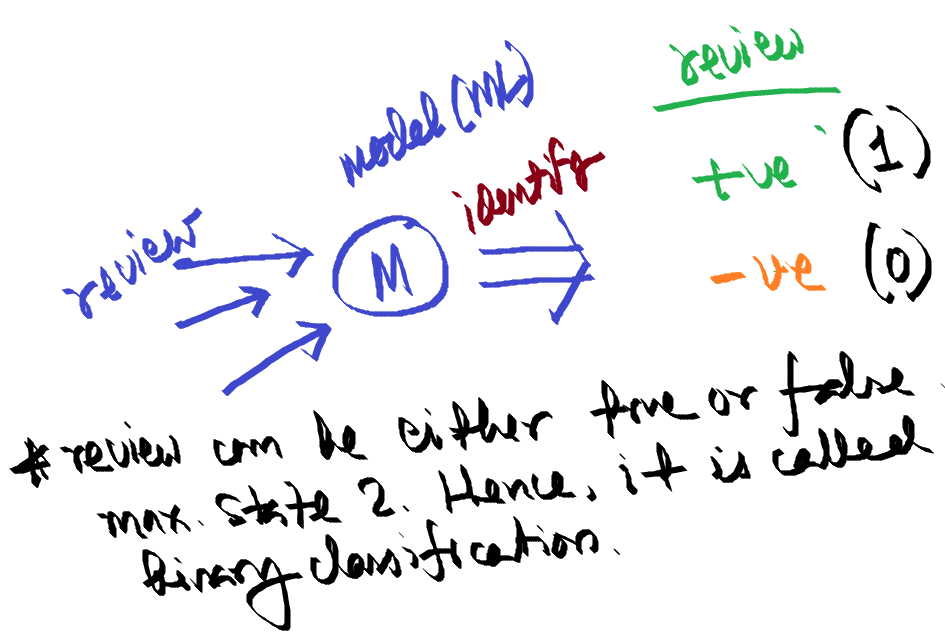 review
model (ML)
M
identify
review
+ve (1)
-ve (0)
* review can be either true or false.
max. state 2. Hence, it is called
binary classification.